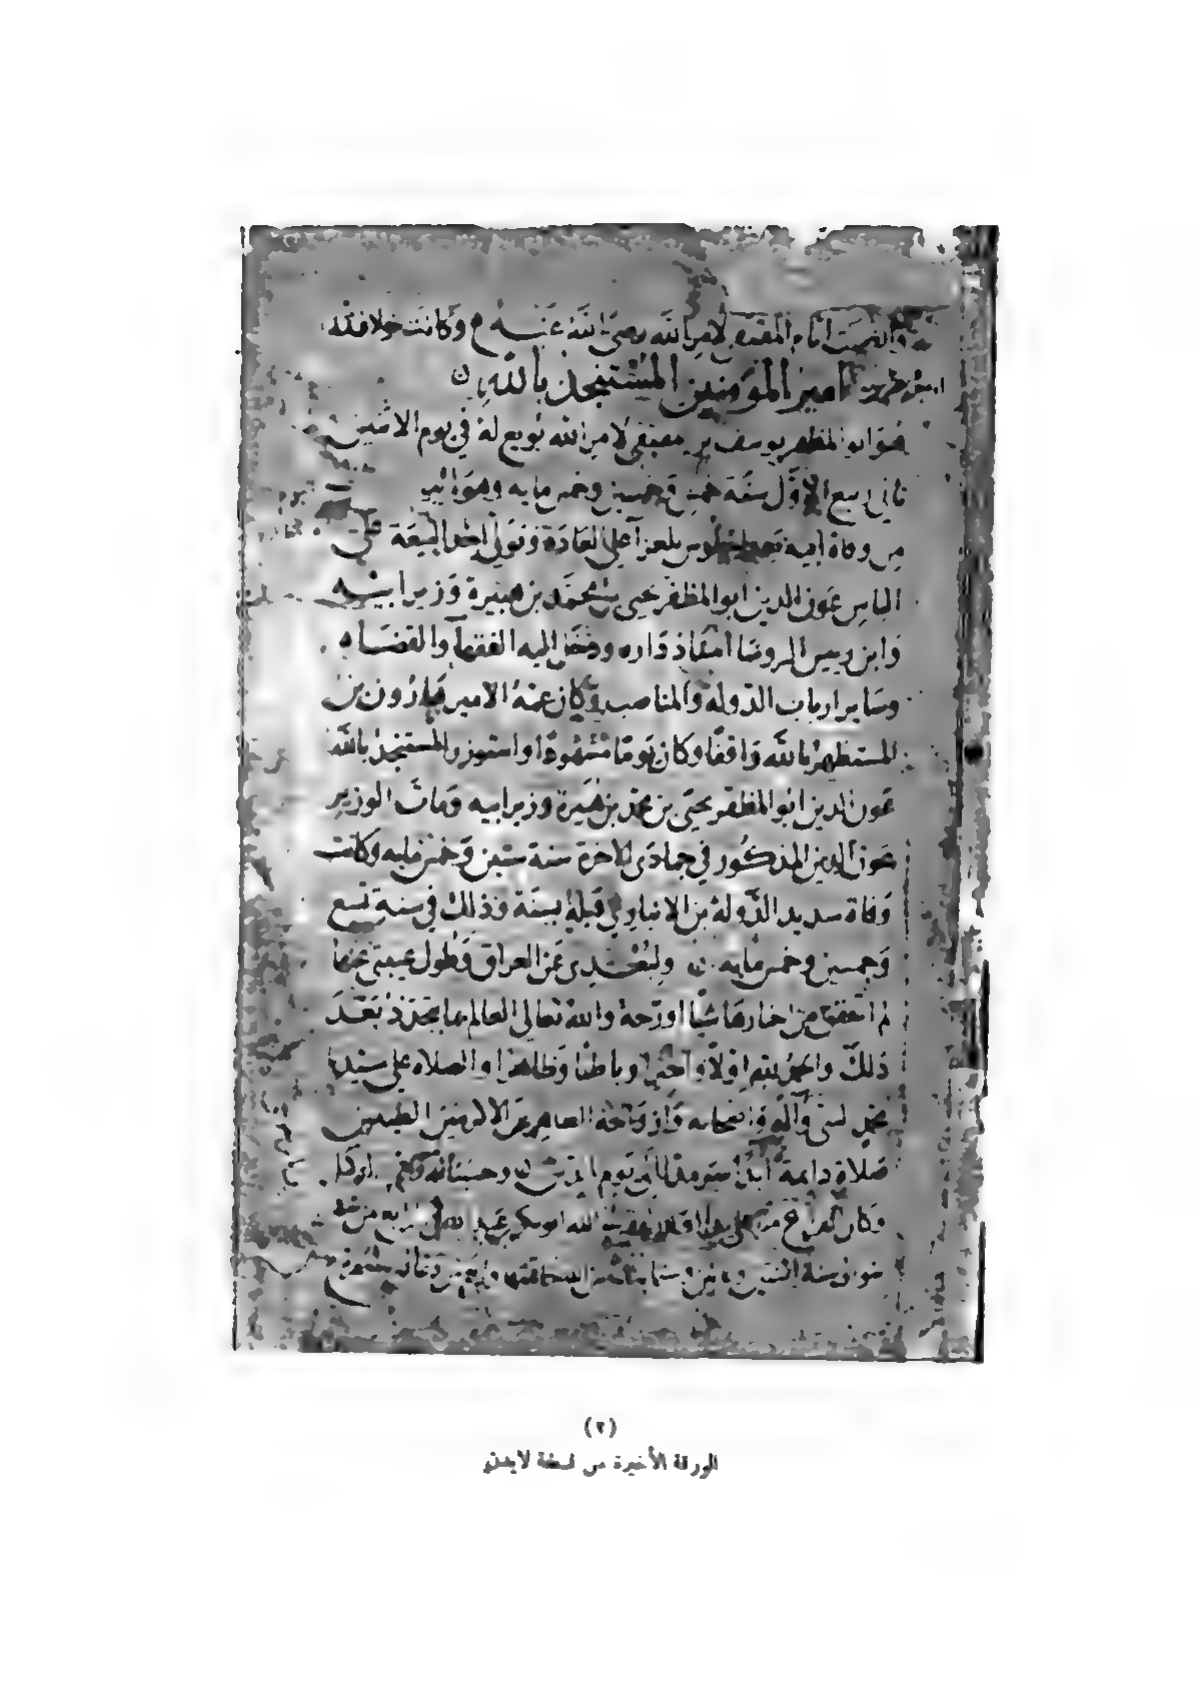 وانقضت ايام المقتفي لامر الله رضي الله عنه وكانت خلافته
امير المؤمنين المستنجد بالله
هو ابو المظفر يوسف بن مقتفي لامر الله بويع له في يوم الاثنين
ثاني ربيع الاول سنة خمس وخمسين وخمس مايه وهو
من وفاة ابيه بعد جلوس للعزا على العادة وتولى اخذ البيعة على
الناس عون الدين ابو المظفر يحيى بن محمد بن هبيرة وزير ابيه
وابن رييس الروسا استاذ داره وحضر اليه الفقهآ والقضاه
وساير ارباب الدولة والمناصب وكان عمه الامير هارون بن
المستظهر بالله واقفا وكان يوما مشهودا واستوزر المستنجد بالله
عون الدين ابو المظفر يحيى بن محمد بن هبيرة وزير ابيه ومات الوزير
عون الدين المذكور في جمادى الاخرة سنة ستين وخمس مايه وكانت
وفاة سديد الدولة بن الانباري قبله بسنة وذلك في سنة تسع
وخمسين وخمس مايه ولبعدي عن العراق وطول غيبتي عنها
لم اتحقق من اخبارها شيا اورخه والله تعالى العالم بما تجدد بعد
ذلك والحمد لله اولا واخرا وباطنا وظاهرا والصلاه على سيدنا
محمد النبي وآله واصحابه وازواجه الطاهرين الاكرمين الطيبين
صلاة دايمة ابدا سرمدا الى يوم الدين وحسبنا الله وكفى
وكان الفراغ من
سنة اثنتين
(٢)
الورقة الأخيرة من نسخة لايدن